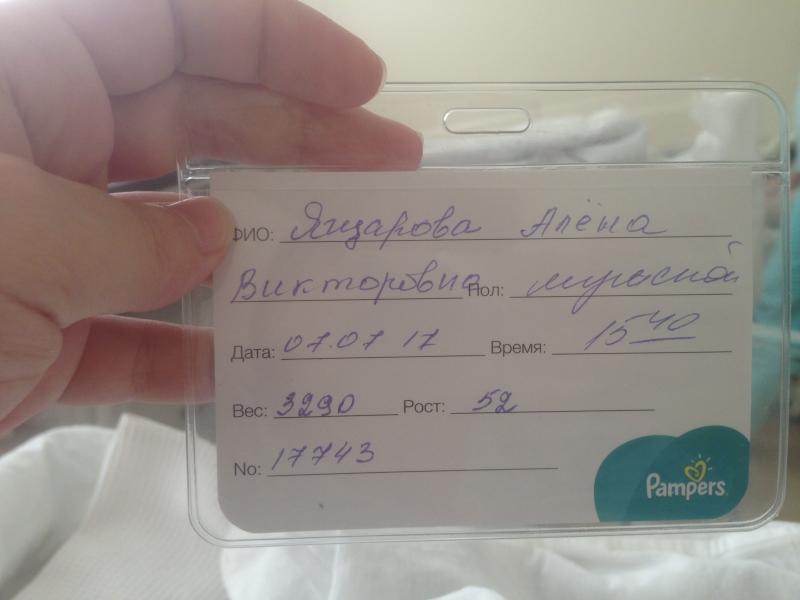 ФИО: Ящарова Алёна
Викторовна Пол: мужской
Дата: 07.07 17 Время: 15 40
Вес: 3290 Рост: 52
No: 17743
Pampers